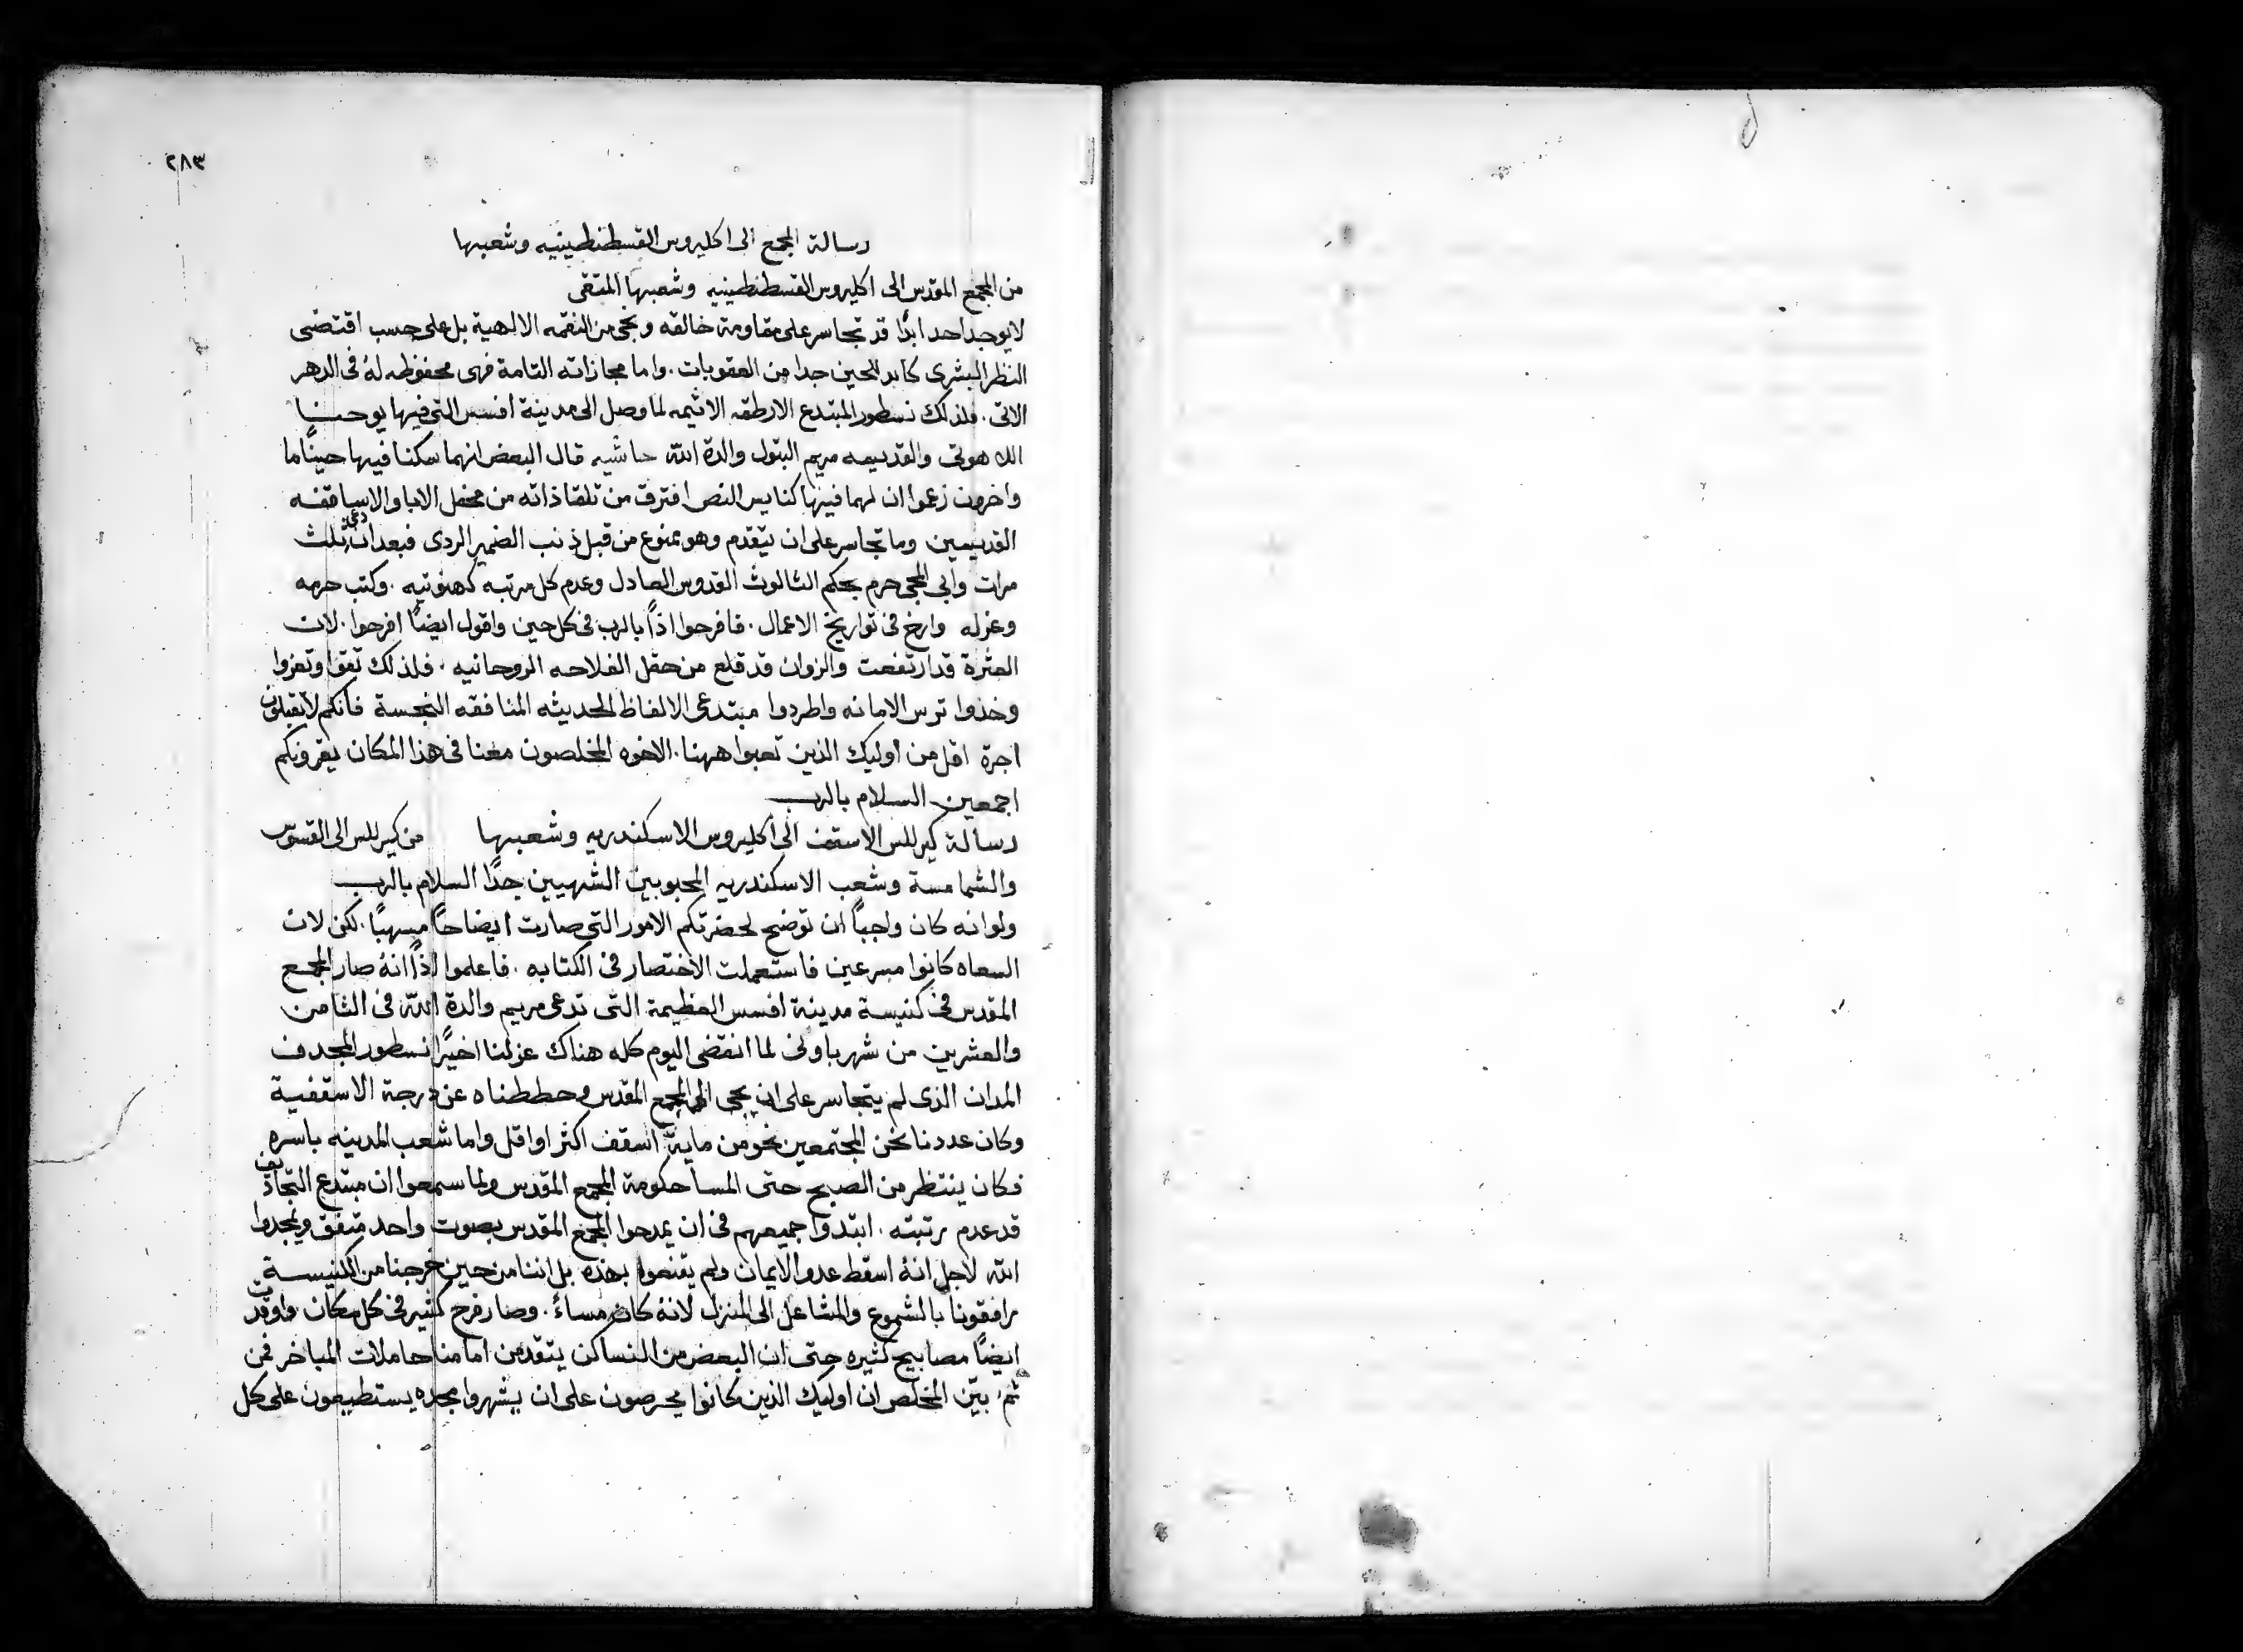 ٢٨٣
رسالة المجمع الى اكليروس القسطنطينيه وشعبها
من المجمع المقدس الى اكليروس القسطنطينيه وشعبها المتقى
لايوجد احد ابدًا قد تجاسر على مقاومة خالقه ونجى من النقمه الالهية بل على حسب اقتضى
النظر البشرى كابد للحين جدا من العقوبات . واما مجازاته التامة فهى محفوظه لهُ فى الدهر
الاتى . فلذلك نسطور المبتدع الارطقه الاثيمه لما وصل الى مدينة افسس التى فيها يوحنا
اللاهوتى والقديسه مريم البتول والدة الله حاشيه قال البعض انهما سكنا فيها حينًا ما
واخرون زعموا ان لهما فيها كنايس النص افترق من تلقا ذاته من محفل الابا والاساقفه
القديسين وما تجاسر على ان يتقدم وهو ممنوع من قبل ذنب الضمير الردى فبعد ان دعى ثلث
مرات وابى المجى حرم بحكم الثالوث القدوس العادل وعدم كل مرتبه كهنوتيه . وكتب حرمه
وعزله وارخ فى تواريخ الاعمال . فافرحوا اذًا بالرب فى كل حين واقول ايضًا افرحوا . لان
العثرة قد ارتفعت والزوان قد قلع من حقل الفلاحه الروحانيه . فلذلك تقوا وتعزوا
وخذوا ترس الامانه واطردوا مبتدعى الالفاظ الحديثه المنافقه النجسة فانكم لا تقبلون
اجرة اقل من اوليك الذين تعبوا ههنا . الاخوه المخلصون معنا فى هذا المكان يقرونكم
اجمعين السلام بالرب
رسالة كيرللس الاسقف الى اكليروس الاسكندريه وشعبها من كيرللس الى القسوس
والشمامسة وشعب الاسكندريه المحبوبين الشهيين جدًا السلام بالرب
ولو انه كان واجبًا ان توضح لحضرتكم الامور التى صارت ايضاحًا مسهبًا . لكن لان
السعاه كانوا مسرعين فاستعملت الاختصار فى الكتابه . فاعلموا اذًا انهُ صار المجمع
المقدس فى كنيسة مدينة افسس العظيمة التى تدعى مريم والدة الله فى الثامن
والعشرين من شهر باونى لما انقضى اليوم كله هناك عزلنا اخيرًا نسطور المجدف
المدان الذى لم يتجاسر على ان يجى الى المجمع المقدس وحططناه عن درجة الاسقفية
وكان عددنا نحن المجتمعين نحو من ماية اسقف اكثر او اقل واما شعب المدينه باسره
فكان ينتظر من الصبح حتى المسا حكومة المجمع المقدس ولما سمعوا ان مبتدع التجاديف
قد عدم رتبته . ابتدوا جميعهم فى ان يمدحوا المجمع المقدس بصوت واحد متفق ويمجدوا
الله لاجل انهُ اسقط عدو الايمان ولم يقنعوا بهذه بل اننا من حين خرجنا من الكنيسة
رافقونا بالشموع والمشاعل الى المنزل لانهُ كان مساءً . وصار فرح كثير فى كل مكان واوقدت
ايضًا مصابيح كثيره حتى ان البعض من النسا كن يتقدمن امامنا حاملات المباخر فمن
ثم بيّن المخلص ان اوليك الذين كانوا يحرصون على ان يشهروا مجده يستطيعون على كل